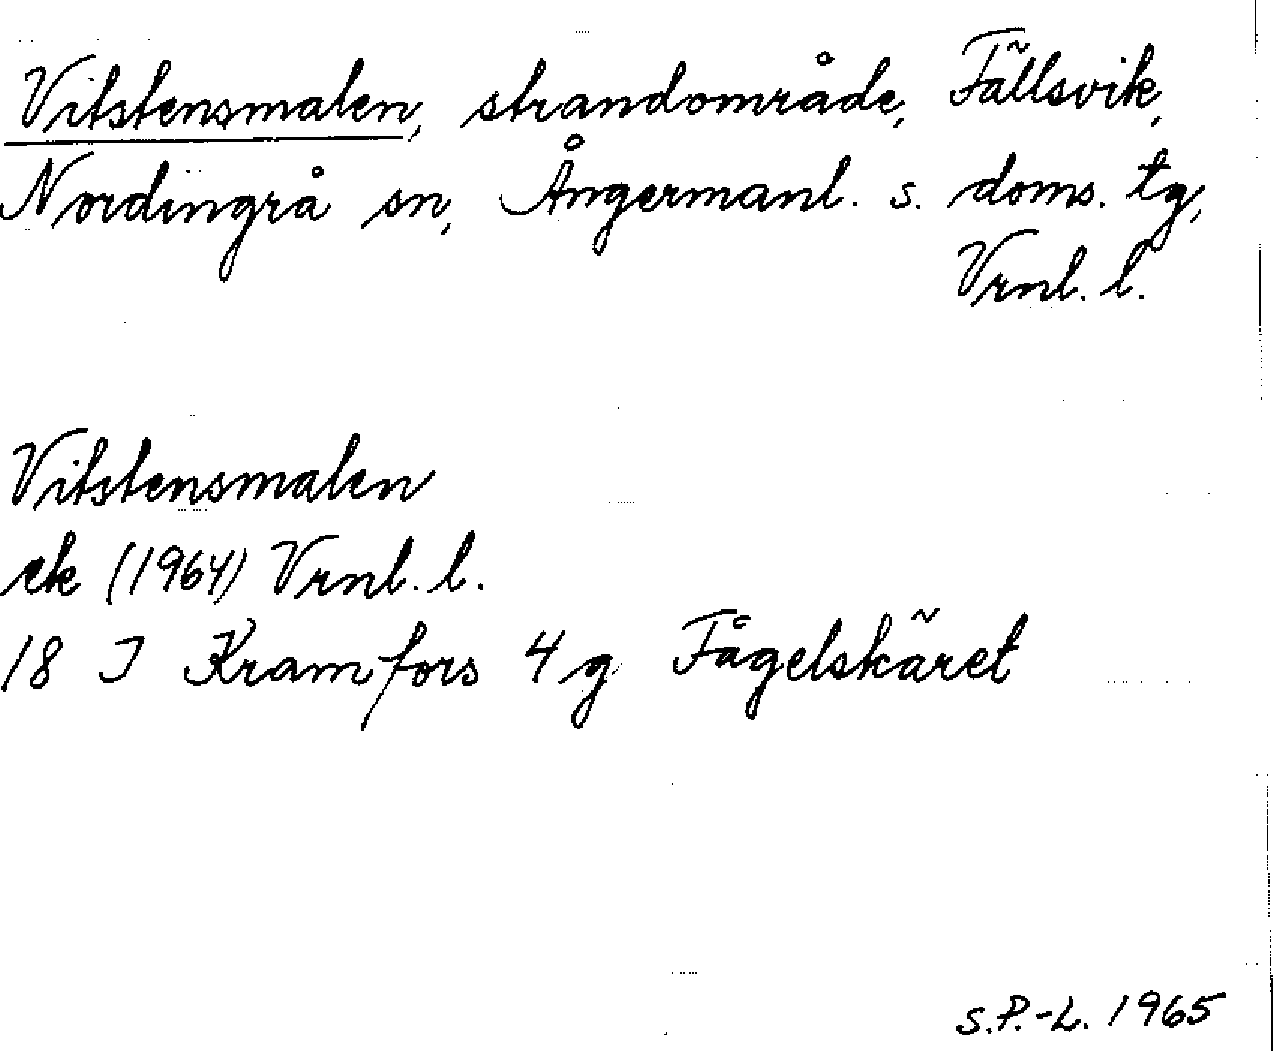 Vitstensmalen, strandområde, Fällsvik,
Nordingrå sn, Ångermanl. s. doms. tg,
Vrnl. l.
Vitstensmalen
ek (1964) Vrnl. l.
18 J Kramfors 4 g Fågelskäret
S.P.-L. 1965